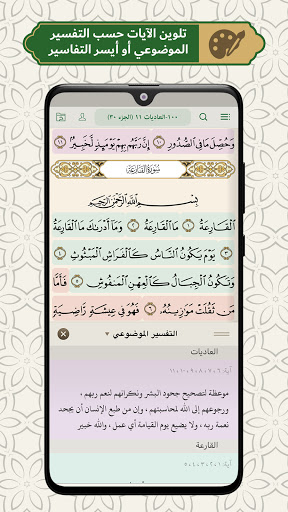 تلوين الآيات حسب التفسير
الموضوعي أو أيسر التفاسير
١٠٠-العاديات ١١ (الجزء ٣٠)
وَحُصِّلَ مَا فِي ٱلصُّدُورِ ١٠ إِنَّ رَبَّهُم بِهِمۡ يَوۡمَئِذٖ لَّخَبِيرُۢ ١١
سُورَةُ القَارِعَةِ
بِسۡمِ ٱللَّهِ ٱلرَّحۡمَٰنِ ٱلرَّحِيمِ
ٱلۡقَارِعَةُ ١ مَا ٱلۡقَارِعَةُ ٢ وَمَآ أَدۡرَىٰكَ مَا ٱلۡقَارِعَةُ
٣ يَوۡمَ يَكُونُ ٱلنَّاسُ كَٱلۡفَرَاشِ ٱلۡمَبۡثُوثِ ٤
وَتَكُونُ ٱلۡجِبَالُ كَٱلۡعِهۡنِ ٱلۡمَنفُوشِ ٥ فَأَمَّا
مَن ثَقُلَتۡ مَوَٰزِينُهُۥ ٦ فَهُوَ فِي عِيشَةٖ رَّاضِيَةٖ
التفسير الموضوعي
العاديات
آية: ٦-٧-٨-٩-١٠-١١
موعظة لتصحيح جحود البشر ونكرانهم لنعم ربهم ،
ورجوعهم إلى الله لمحاسبتهم ، وإن من طبع الإنسان أن يجحد
نعمة ربه ، ولا يضيع يوم القيامة أي عمل ، والله خبير
القارعة
آية: ١-٢-٣-٤-٥